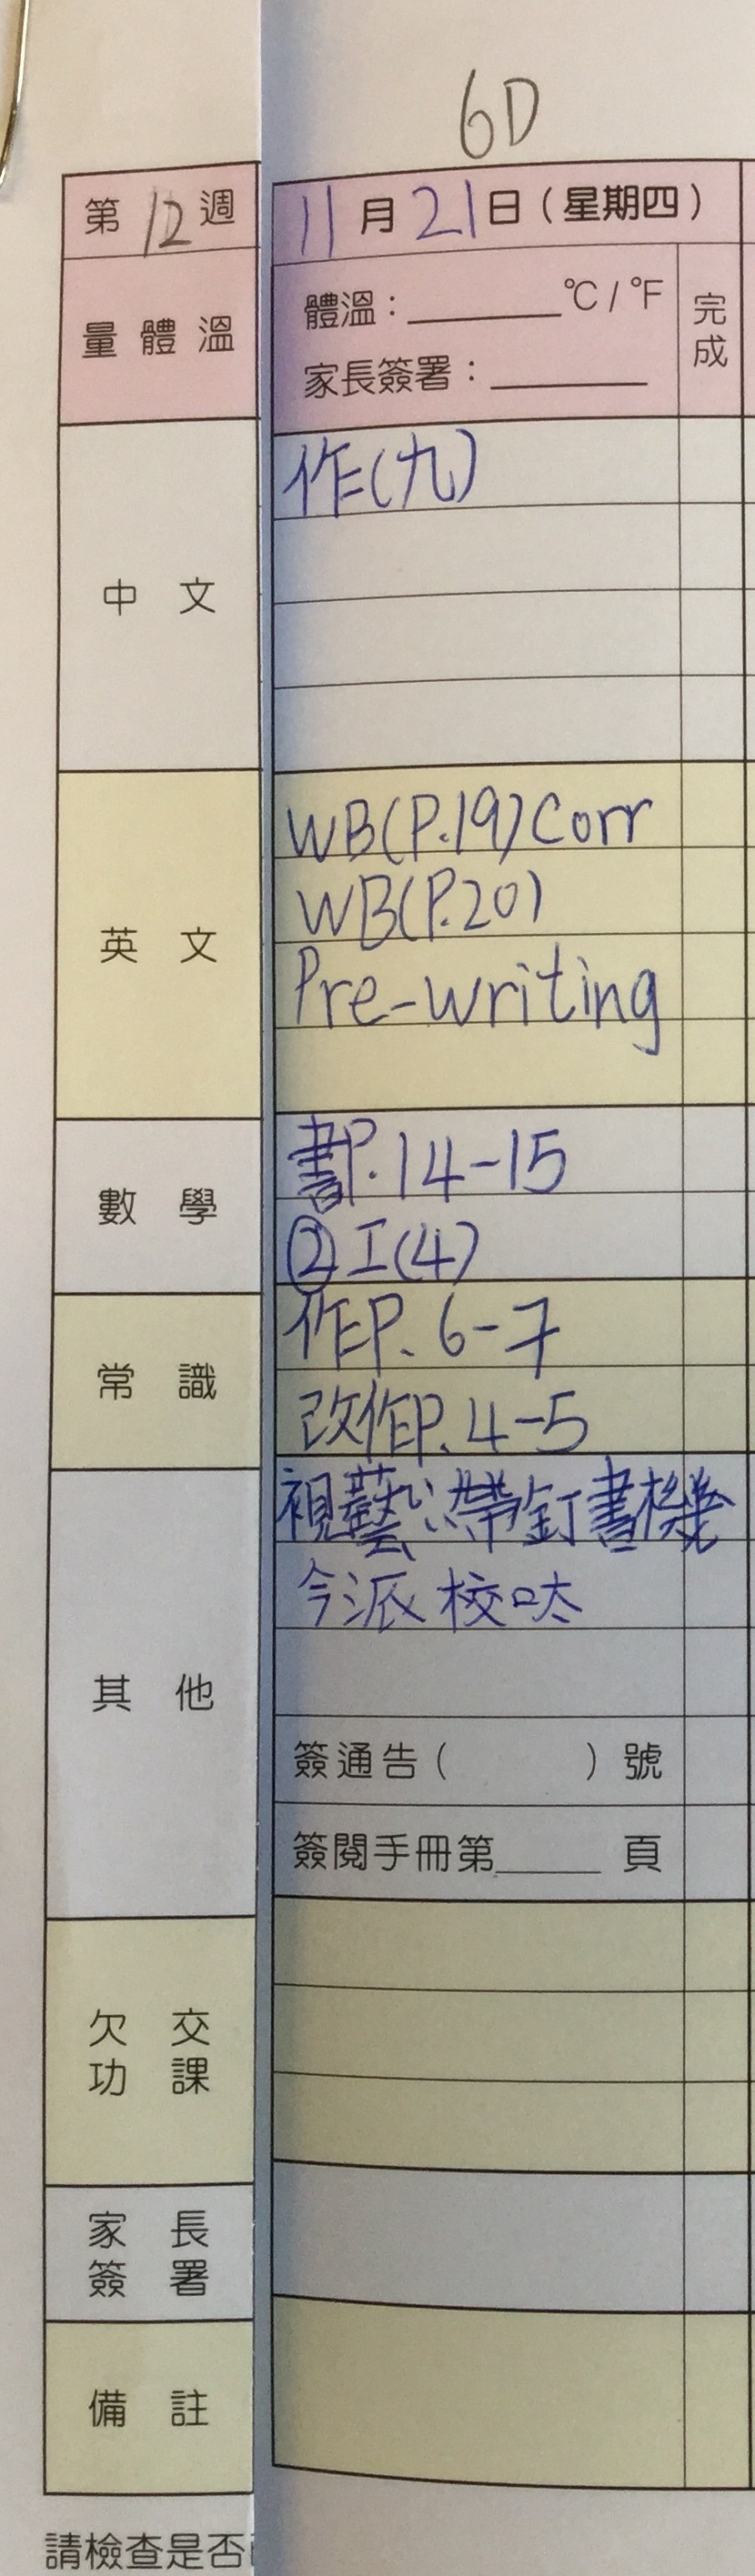 6D
第12週 11月21日（星期四）
量體溫 體溫：______°C / °F 完成
家長簽署：______
中文 作(九)
英文 WB(P.19) Corr
WB(P.20)
Pre-writing
數學 書P.14-15
②工(4)
常識 作P.6-7
改作P.4-5
其他 視藝:帶釘書機
今派校呔
簽通告（ ）號
簽閱手冊第____頁
欠交功課
家長簽署
備註
請檢查是否